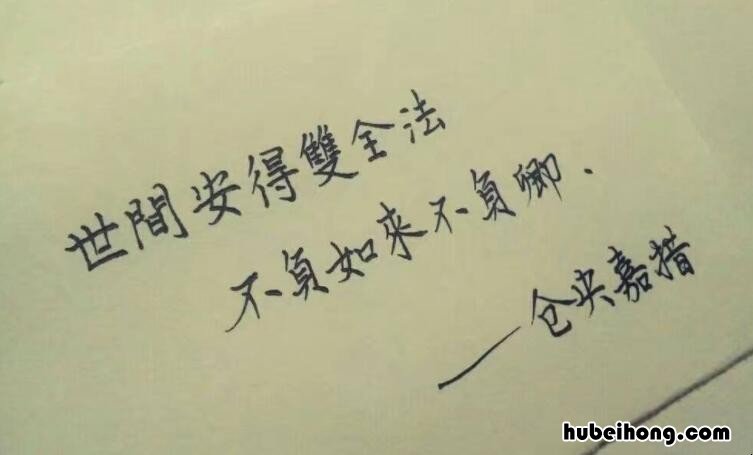 世間安得雙全法
不負如來不負卿.
——仓央嘉措
hubeihong.com